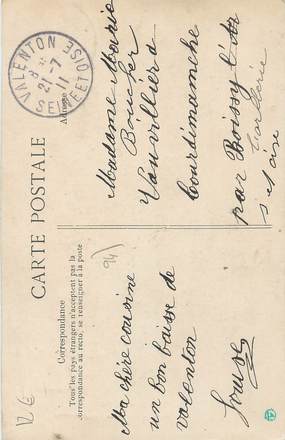 CARTE POSTALE
Correspondance
Tous les pays étrangers n'acceptent pas la
correspondance au recto, se renseigner à la poste
Adresse
VALENTON
8
21-7
11
SEINE ET OISE
Ma chère cousine
un bon baisse de
valenton
Madame Marie
Boucher
Vauvilliers
Courdimanche
par Boissy
s et oise
94
12 €